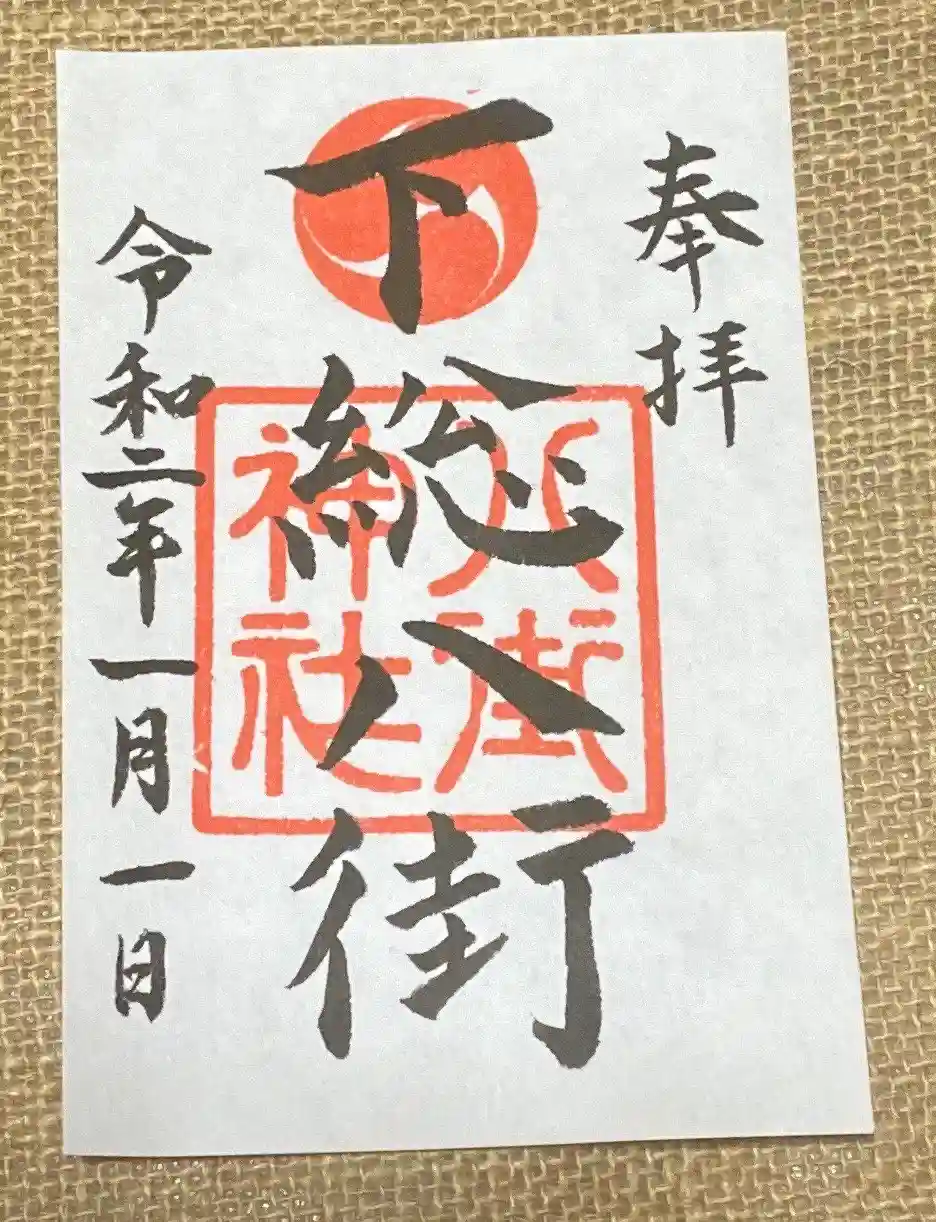 奉拝
下総八街
八街
神社
令和二年一月一日